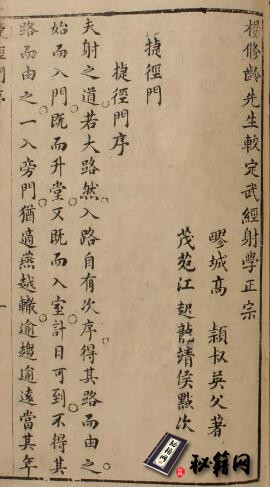 楊修齡先生較定武經射學正宗
疁城高 穎叔英父著
茂苑江起龍靖侯點次
捷徑門
捷徑門序
夫射之道若大路然入路自有次序得其路而由之
始而入門既而升堂又既而入室計日可到不得其
路而由之一入旁門猶適燕越轍逾趨逾遠當其年
捷徑門序
一
秘籍网